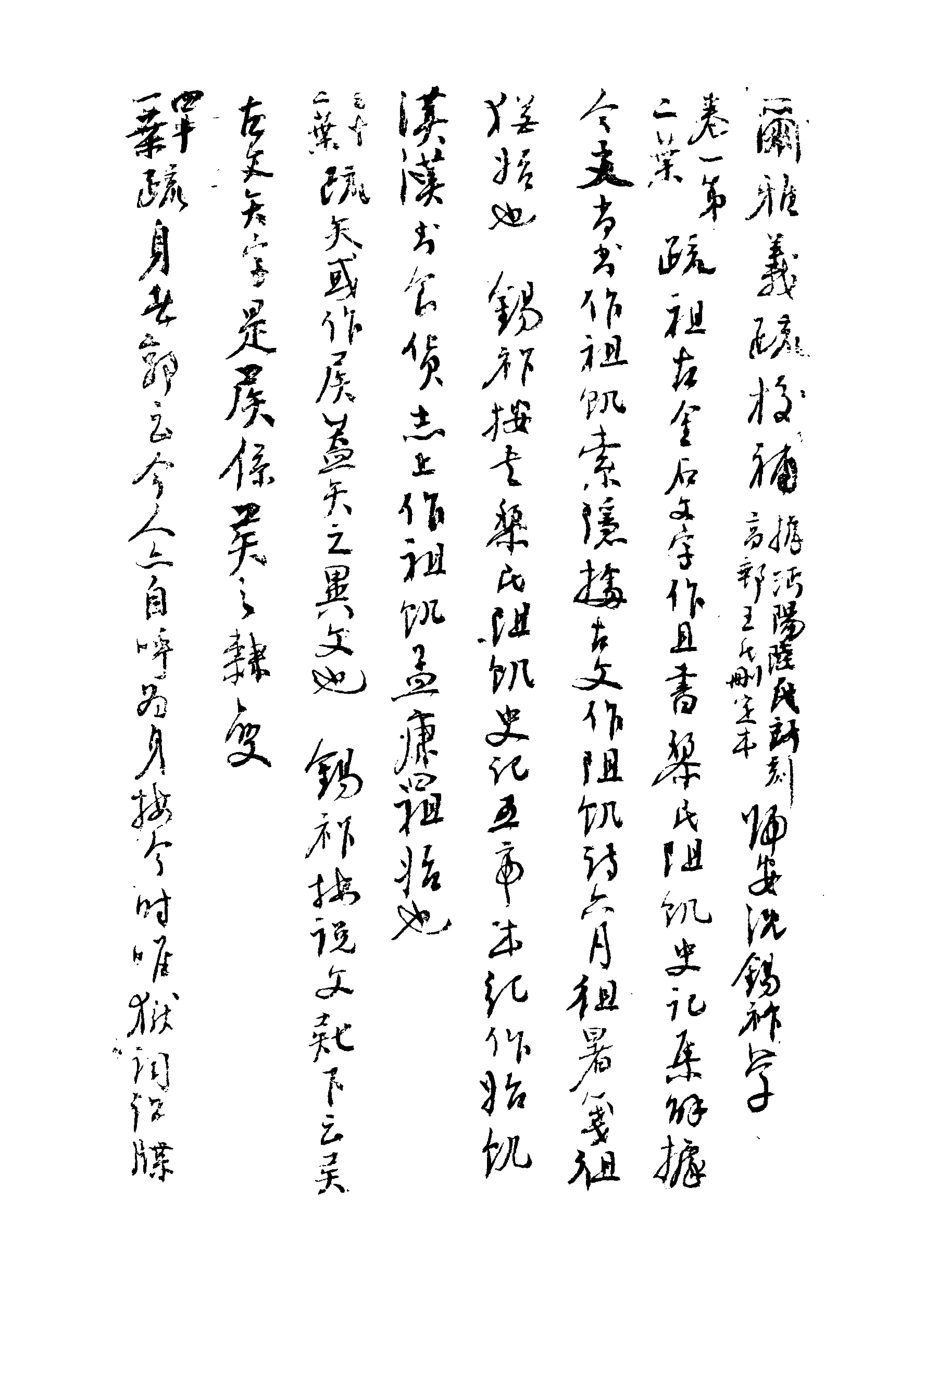 爾雅義疏校補 據沔陽陸氏新刻高郵王氏刪定本 歸安沈錫祚學
卷一第二葉 疏祖古金石文字作且書黎民阻飢史記集解據
今文尚書作祖飢索隱據古文作阻飢詩六月徂暑箋徂
猶始也 錫祚按書黎民阻飢史記五帝本紀作始飢
漢漢書食貨志上作祖飢孟康曰祖始也
三十二葉 疏矢或作𥎦蓋矢之異文也 錫祚按説文𠤕下云𠤗
古文矢字是𥎦係𠤗之隸變
四十一葉 疏身者郭云今人亦自呼為身按今時唯獄詞訟牒